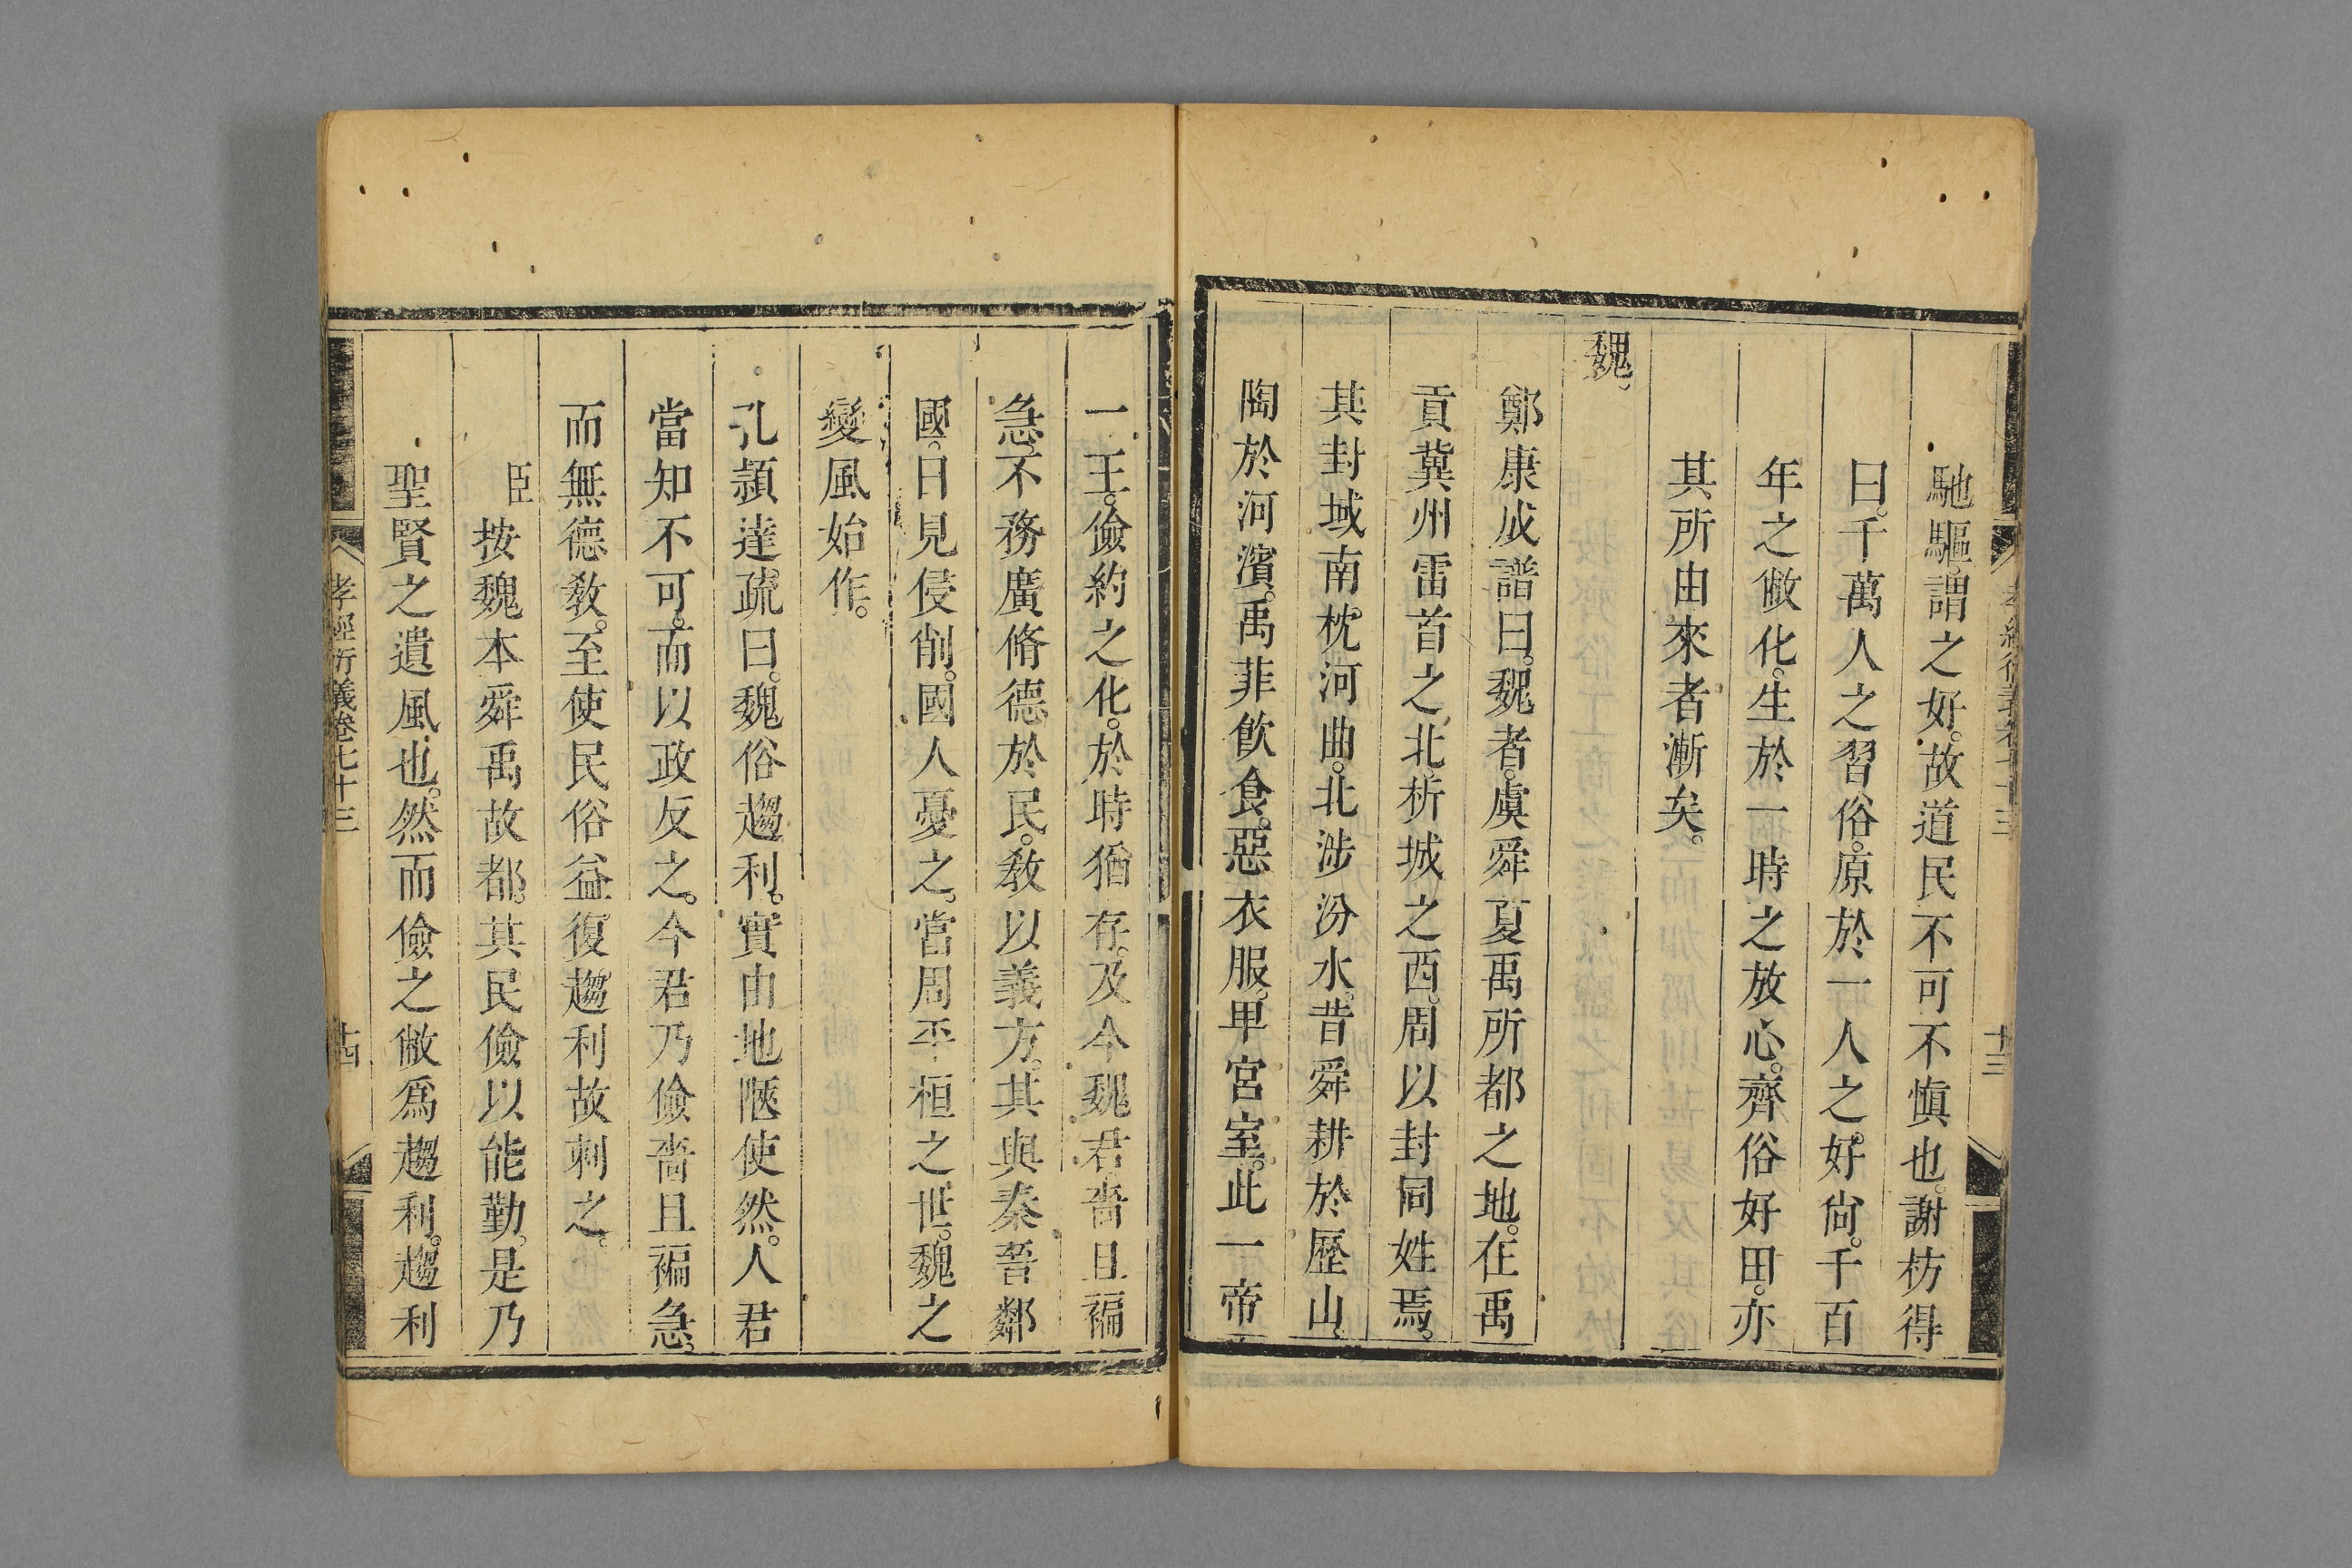 孝經衍義卷七十三
十三
馳驅。謂之好。故道民不可不慎也。謝枋得
曰。千萬人之習俗。原於一人之好尙。千百
年之敝化。生於一時之放心。齊俗好田。亦
其所由來者漸矣。
魏。
鄭康成譜曰。魏者。虞舜夏禹所都之地。在禹
貢冀州雷首之北。析城之西。周以封同姓焉。
其封域南枕河曲。北涉汾水。昔舜耕於歷山。
陶於河濱。禹菲飲食。惡衣服。卑宮室。此一帝
一王。儉約之化。於時猶存。及今魏君嗇且褊
急。不務廣脩德於民。敎以義方。其與秦晉鄰
國。日見侵削。國人憂之。當周平桓之世。魏之
變風始作。
孔頴達疏曰。魏俗趨利。實由地陿使然。人君
當知不可。而以政反之。今君乃儉嗇且褊急。
而無德敎。至使民俗益復趨利。故刺之。
臣按魏本舜禹故都。其民儉以能勤。是乃
聖賢之遺風也。然而儉之敝爲趨利。趨利
孝經衍義卷七十三
十四